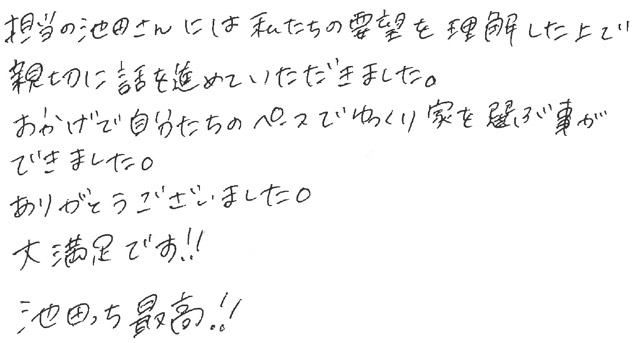 担当の池田さんには私たちの要望を理解した上で
親切に話を進めていただきました。
おかげで自分たちのペースでゆっくり家を選ぶ事が
できました。
ありがとうございました。
大満足です!!
池田っち最高!!